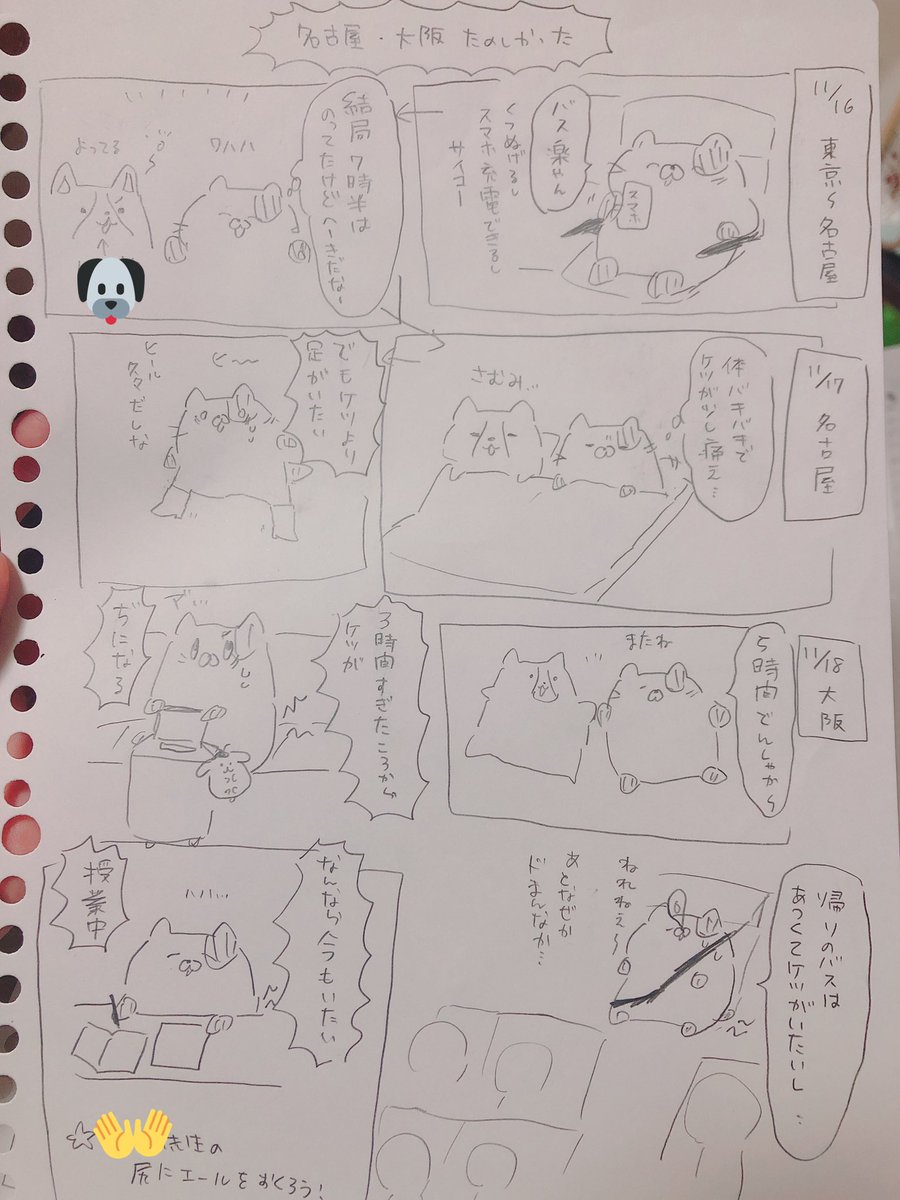 名古屋・大阪 たのしかった
11/16 東京〜名古屋
バス楽やん
くつぬげるし
スマホ充電できるし
サイコー
スマホ
結局7時半は
のってたけどへーきだなー
ワハハ
よってる
11/17 名古屋
体バキバキで
ケツが少し痛え…
さむみ…
でもケツより
足がいたい
ヒ〜〜
ヒール
だしな
11/18 大阪
5時間でんしゃから
またね
3時間すぎたころから
ケツが
ぢになろ
帰りのバスは
あつくてケツがいたいし…
ねれねぇ〜
あとなぜか
ドまんなか…
なんなら今もいたい
ハハハ…
授業中
先生の
尻にエールをおくろう!